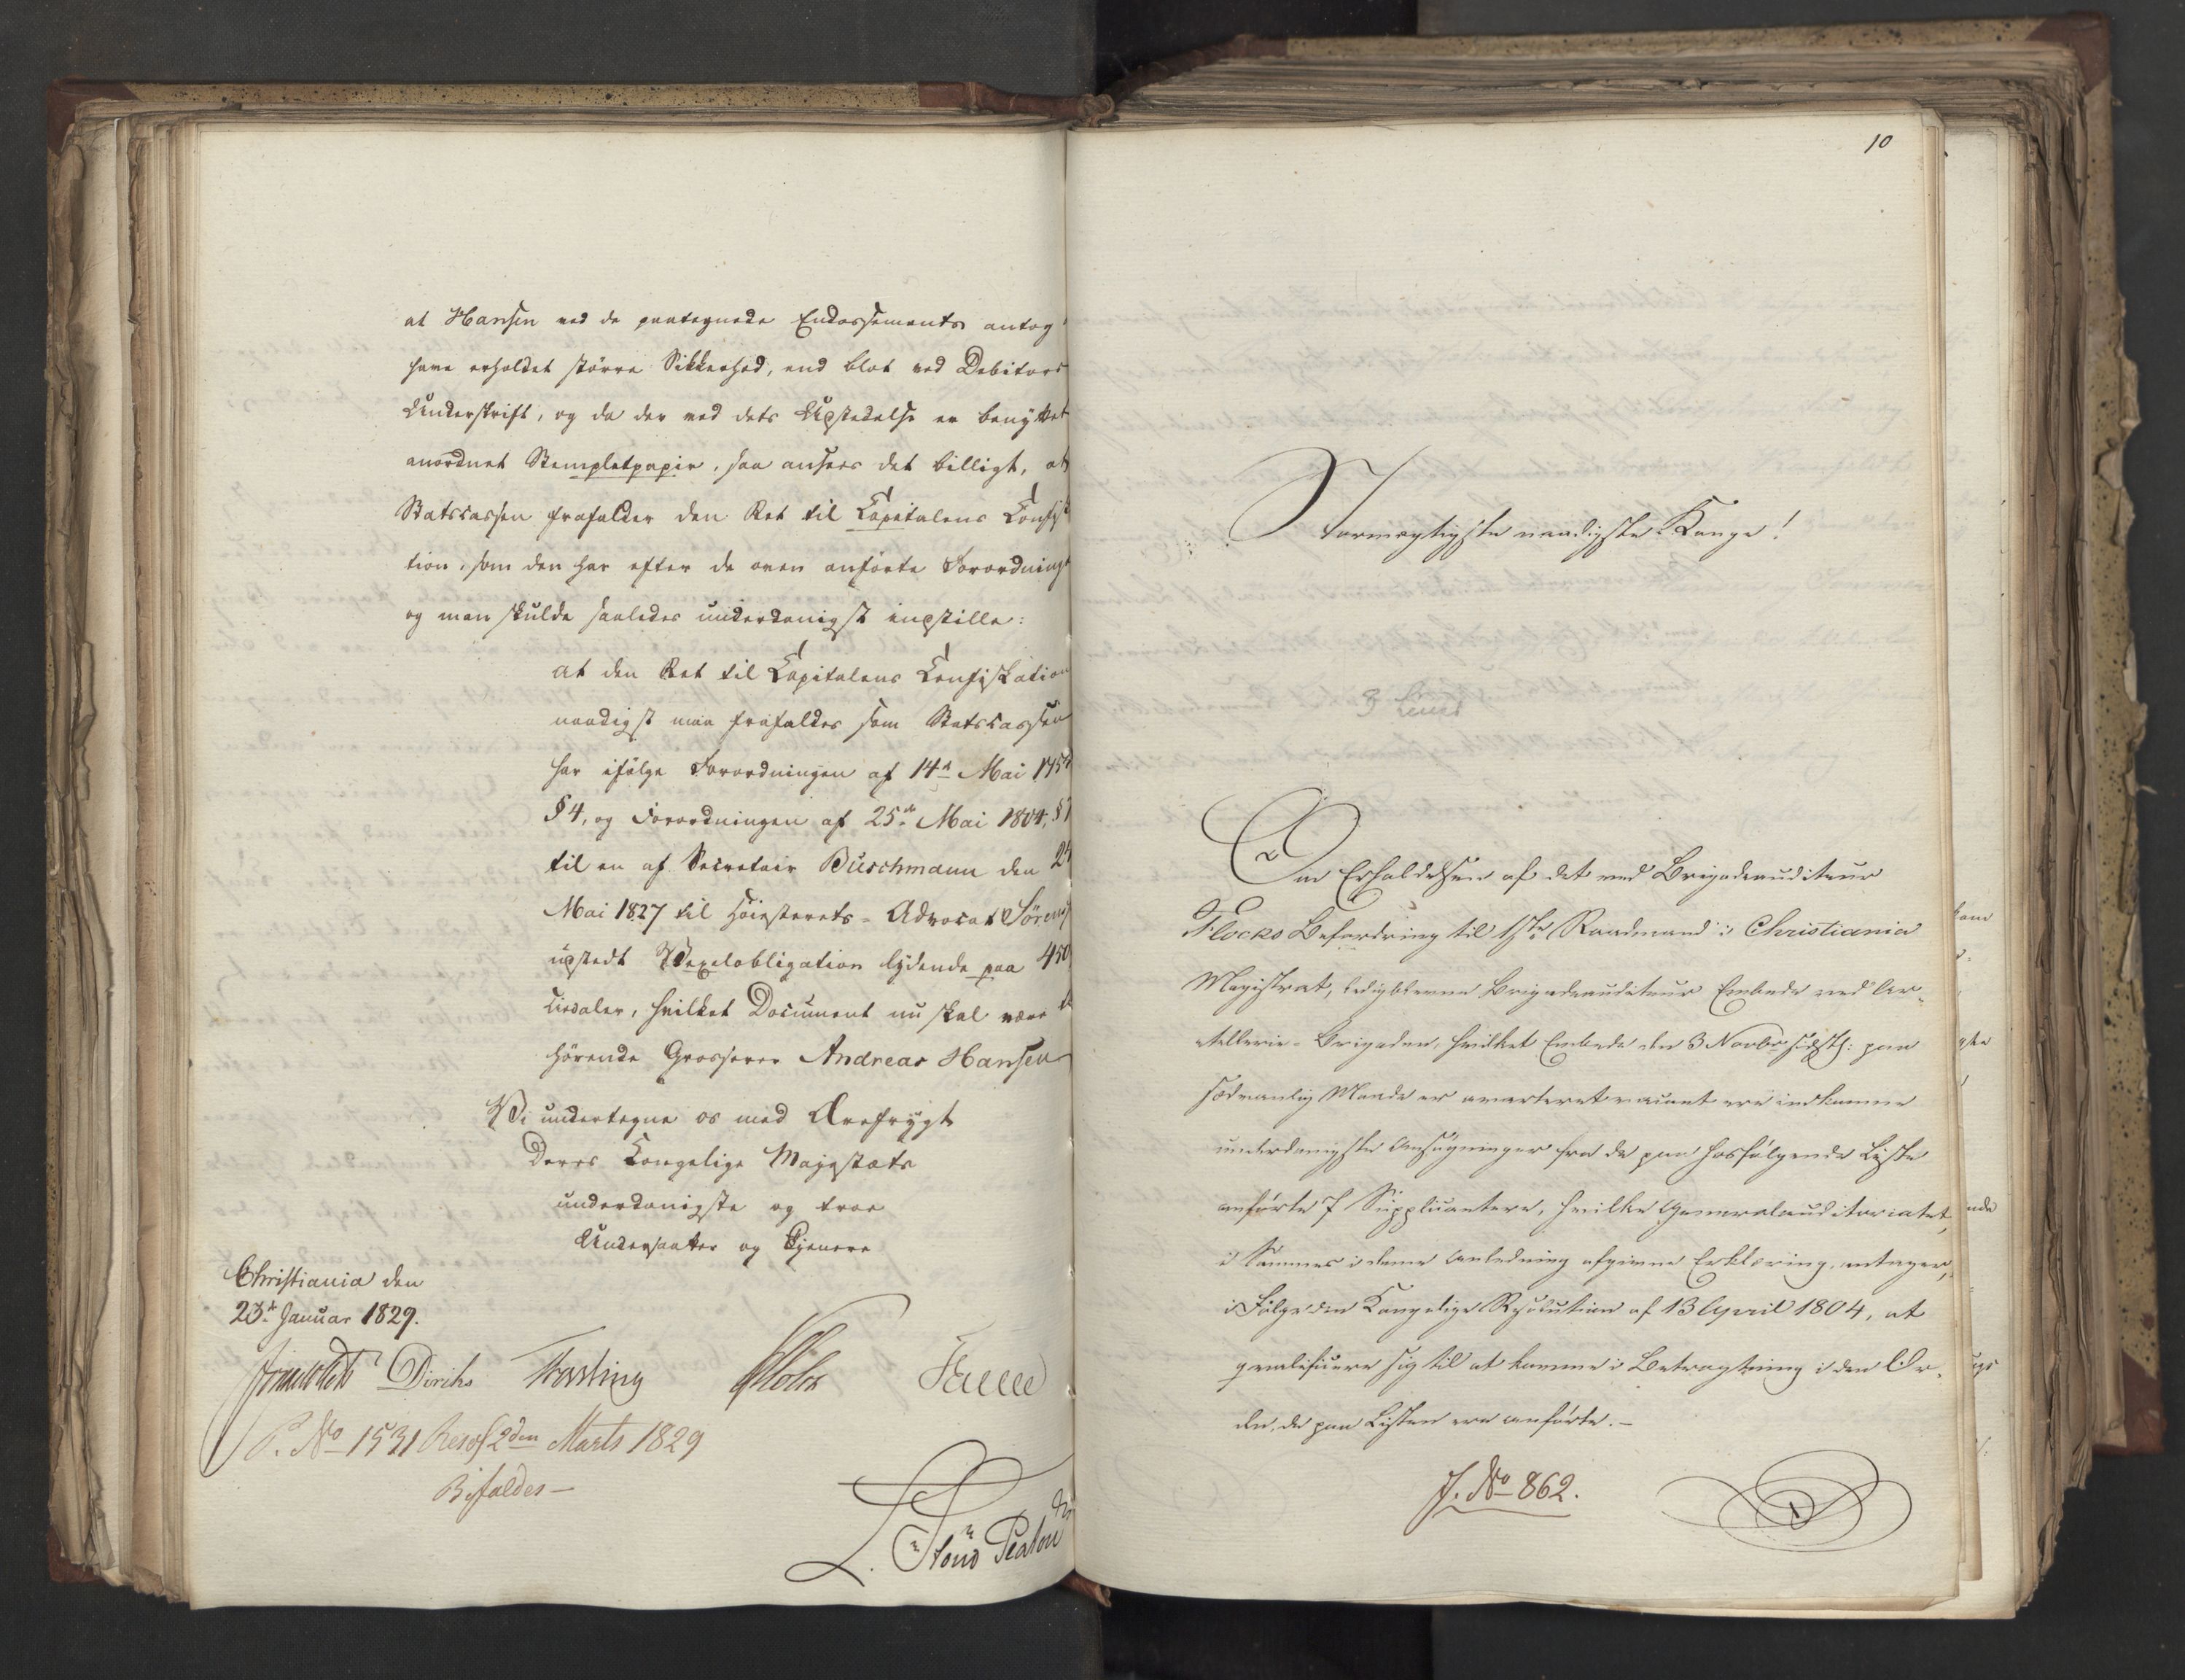 at Hansen ved de paategnede Endossements antog
have erholdet større Sikkerhed, end blot ved Debitors
Underskrift, og da der ved dets Udstedelse er benyttet
anordnet Stempletpapir, saa ansees det billigt, at
Statscassen frafalder den Ret til Capitalens Confis
tion, som den har efter de oven anførte Forordning
og man skulde saaledes underdanigst indstille:
at den Ret til Capitalens Confiskation
naadigst maa frafaldes som Statscassen
har ifølge Forordningen af 14de Mai 175
§ 4, og Forordningen af 25de Mai 1804, §
til en af Secretair Buschmann den 2
Mai 1827 til Høiesterets-Advocat Sørens
udstedt Vexelobligation lydende paa 450
Sp​ecidaler, hvilket Document nu skal være
hørende Grosserer Andreas Hansen
Vi undertegne os med Ærefrygt
Deres Kongelige Majestæts
underdanigste og troe
Undersaatter og Tjenere
Christiania den
23de Januar 1829.
Diriks
P. No 1531 Resol 2den Marts 1829
Bifaldes —
10
Stormægtigste naadigste Konge!
Om Erholdelsen af det ved Brigadeauditeur
Flocks Befordring til 1ste Raadmand i Christiania
Magistrat, ledigblevne Brigadeauditeur Embede ved Ar-
tillerie-Brigaden, hvilket Embede den 3 Novbr sidstl: paa
sædvanlig Maade er averteret vacant ere indkomne
underdanigste Ansøgninger fra de paa hosfølgende Liste
anførte 7 Supplicantere, hvilke Generalauditoriatet,
i Sammes i denne Anledning afgivne Erklæring, antager,
i Følge den Kongelige Resolution af 13 April 1804, at
qvalificere sig til at komme i Betragtning i den Or-
den, de paa Listen ere anførte.—
J. No 862.